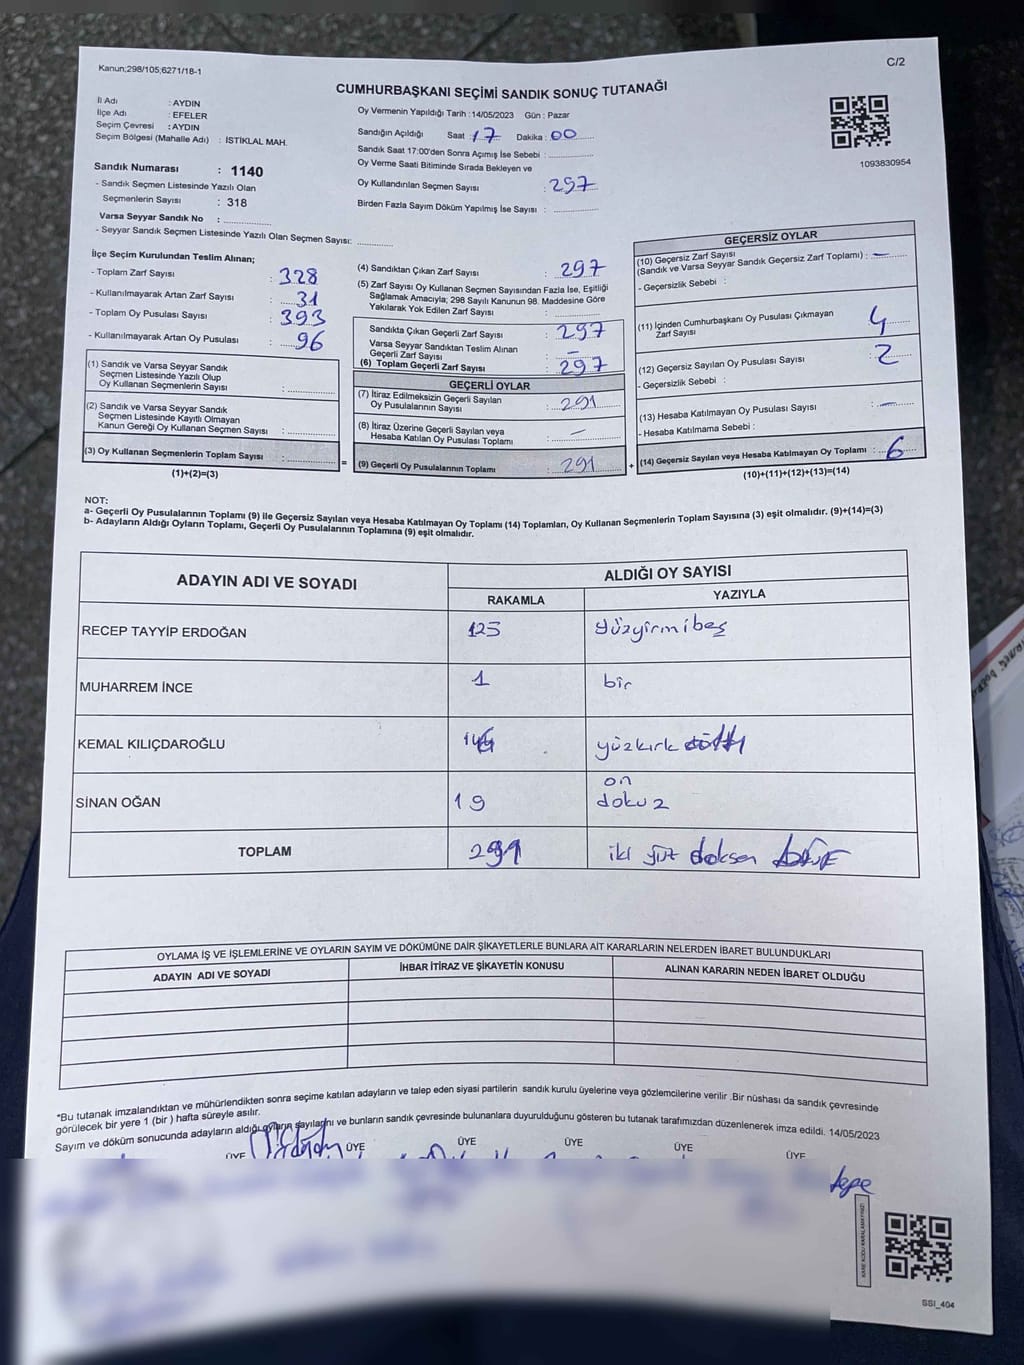 Kanun;298/105;6271/18-1
C/2
CUMHURBAŞKANI SEÇİMİ SANDIK SONUÇ TUTANAĞI
İl Adı : AYDIN
İlçe Adı : EFELER
Seçim Çevresi : AYDIN
Seçim Bölgesi (Mahalle Adı) : İSTİKLAL MAH.
Sandık Numarası : 1140
- Sandık Seçmen Listesinde Yazılı Olan
Seçmenlerin Sayısı : 318
Varsa Seyyar Sandık No :
- Seyyar Sandık Seçmen Listesinde Yazılı Olan Seçmen Sayısı:
Oy Vermenin Yapıldığı Tarih : 14/05/2023 Gün : Pazar
Sandığın Açıldığı Saat : 17 Dakika : 00
Sandık Saat 17:00'den Sonra Açımış İse Sebebi :
Oy Verme Saati Bitiminde Sırada Bekleyen ve
Oy Kullandırılan Seçmen Sayısı : 297
Birden Fazla Sayım Döküm Yapılmış İse Sayısı :
1093830954
İlçe Seçim Kurulundan Teslim Alınan;
- Toplam Zarf Sayısı : 328
- Kullanılmayarak Artan Zarf Sayısı : 31
- Toplam Oy Pusulası Sayısı : 393
- Kullanılmayarak Artan Oy Pusulası : 96
(1) Sandık ve Varsa Seyyar Sandık
Seçmen Listesinde Yazılı Olup
Oy Kullanan Seçmenlerin Sayısı :
(2) Sandık ve Varsa Seyyar Sandık
Seçmen Listesinde Kayıtlı Olmayan
Kanun Gereği Oy Kullanan Seçmen Sayısı :
(3) Oy Kullanan Seçmenlerin Toplam Sayısı :
(1)+(2)=(3)
(4) Sandıktan Çıkan Zarf Sayısı : 297
(5) Zarf Sayısı Oy Kullanan Seçmen Sayısından Fazla İse, Eşitliği
Sağlamak Amacıyla; 298 Sayılı Kanunun 98. Maddesine Göre
Yakılarak Yok Edilen Zarf Sayısı :
Sandıkta Çıkan Geçerli Zarf Sayısı : 297
Varsa Seyyar Sandıktan Teslim Alınan
Geçerli Zarf Sayısı : —
(6) Toplam Geçerli Zarf Sayısı : 297
GEÇERLİ OYLAR
(7) İtiraz Edilmeksizin Geçerli Sayılan
Oy Pusulalarının Sayısı : 291
(8) İtiraz Üzerine Geçerli Sayılan veya
Hesaba Katılan Oy Pusulası Toplamı : —
= (9) Geçerli Oy Pusulalarının Toplamı : 291 +
GEÇERSİZ OYLAR
(10) Geçersiz Zarf Sayısı
(Sandık ve Varsa Seyyar Sandık Geçersiz Zarf Toplamı) : —
- Geçersizlik Sebebi :
(11) İçinden Cumhurbaşkanı Oy Pusulası Çıkmayan
Zarf Sayısı : 4
(12) Geçersiz Sayılan Oy Pusulası Sayısı : 2
- Geçersizlik Sebebi :
(13) Hesaba Katılmayan Oy Pusulası Sayısı : —
- Hesaba Katılmama Sebebi :
(14) Geçersiz Sayılan veya Hesaba Katılmayan Oy Toplamı : 6
(10)+(11)+(12)+(13)=(14)
NOT:
a- Geçerli Oy Pusulalarının Toplamı (9) ile Geçersiz Sayılan veya Hesaba Katılmayan Oy Toplamı (14) Toplamları, Oy Kullanan Seçmenlerin Toplam Sayısına (3) eşit olmalıdır. (9)+(14)=(3)
b- Adayların Aldığı Oyların Toplamı, Geçerli Oy Pusulalarının Toplamına (9) eşit olmalıdır.
ADAYIN ADI VE SOYADI
ALDIĞI OY SAYISI
RAKAMLA YAZIYLA
RECEP TAYYİP ERDOĞAN 125 yüzyirmibeş
MUHARREM İNCE 1 bir
KEMAL KILIÇDAROĞLU yüzkırk
SİNAN OĞAN 19 on dokuz
TOPLAM 291 iki yüz doksan
OYLAMA İŞ VE İŞLEMLERİNE VE OYLARIN SAYIM VE DÖKÜMÜNE DAİR ŞİKAYETLERLE BUNLARA AİT KARARLARIN NELERDEN İBARET BULUNDUKLARI
ADAYIN ADI VE SOYADI İHBAR İTİRAZ VE ŞİKAYETİN KONUSU ALINAN KARARIN NEDEN İBARET OLDUĞU
*Bu tutanak imzalandıktan ve mühürlendikten sonra seçime katılan adayların ve talep eden siyasi partilerin sandık kurulu üyelerine veya gözlemcilerine verilir .Bir nüshası da sandık çevresinde
görülecek bir yere 1 (bir ) hafta süreyle asılır.
Sayım ve döküm sonucunda adayların aldığı oyların sayılarını ve bunların sandık çevresinde bulunanlara duyurulduğunu gösteren bu tutanak tarafımızdan düzenlenerek imza edildi. 14/05/2023
ÜYE ÜYE ÜYE ÜYE ÜYE ÜYE
tepe
SSI_404